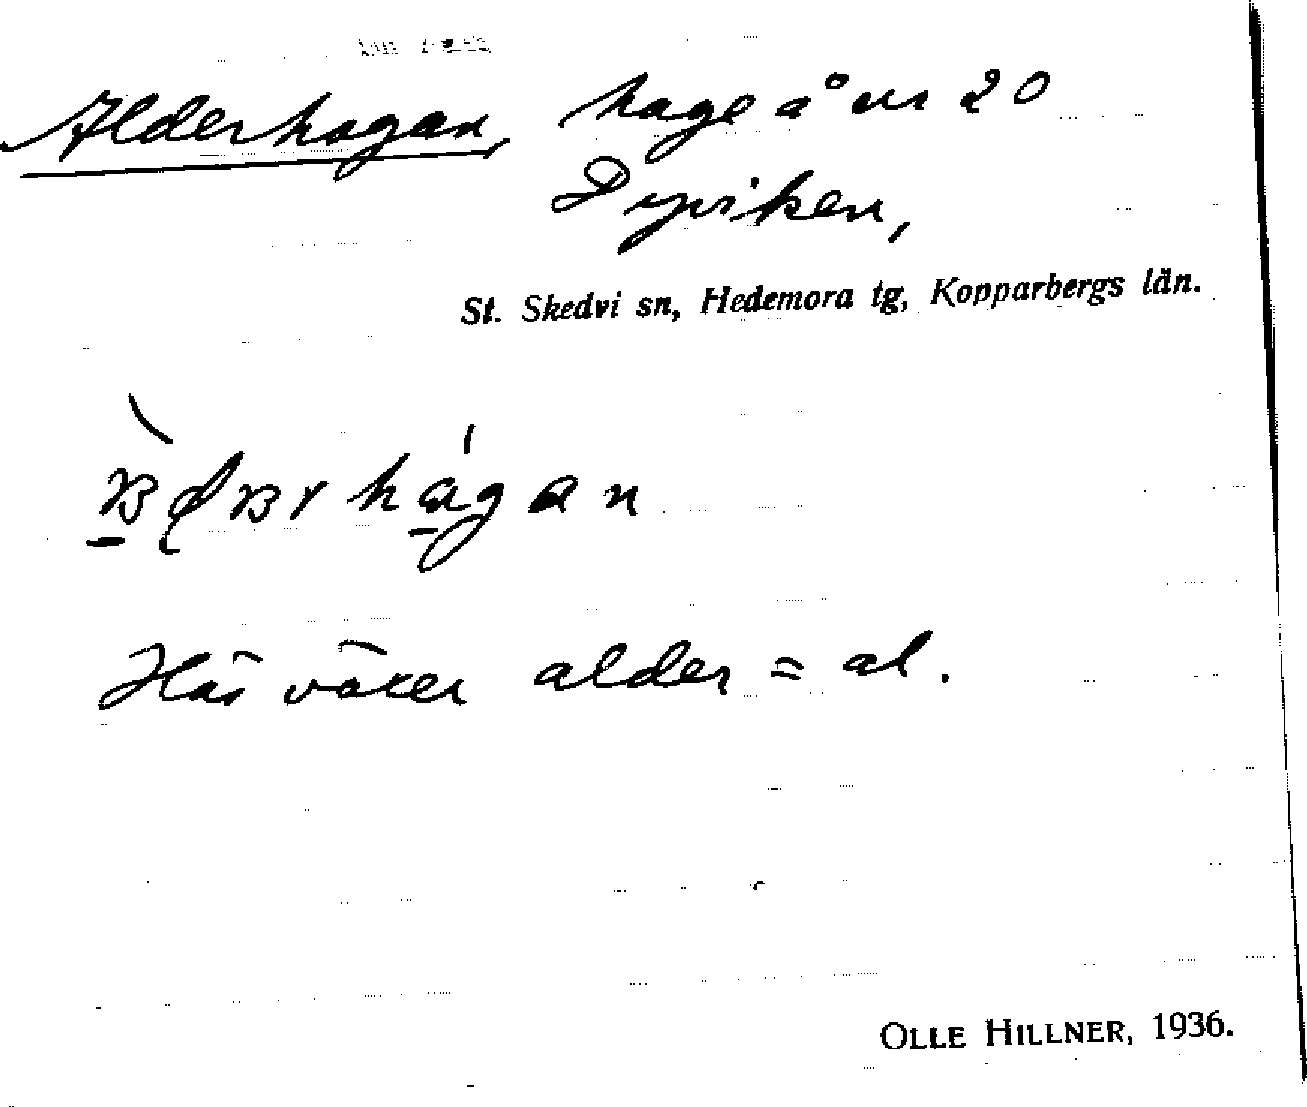 Alderhagan, hage å nr 20
Dyviken,
St. Skedvi sn, Hedemora tg, Kopparbergs län.
Här växer alder = al.
OLLE HILLNER, 1936.